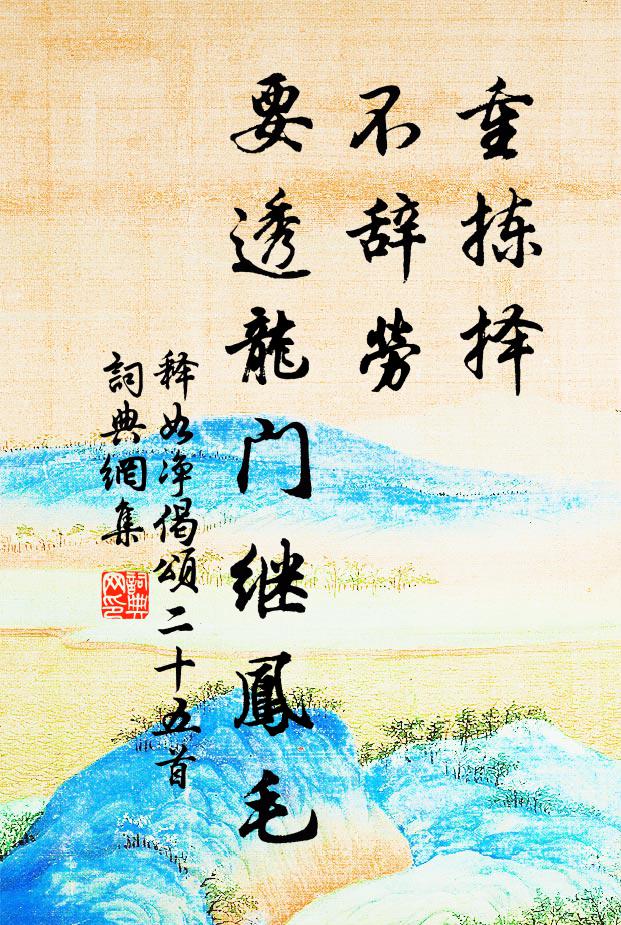 重拣择
不辞劳
要透龍门继鳳毛
释如净偈頌二十五首
詞典網集
詞典网印